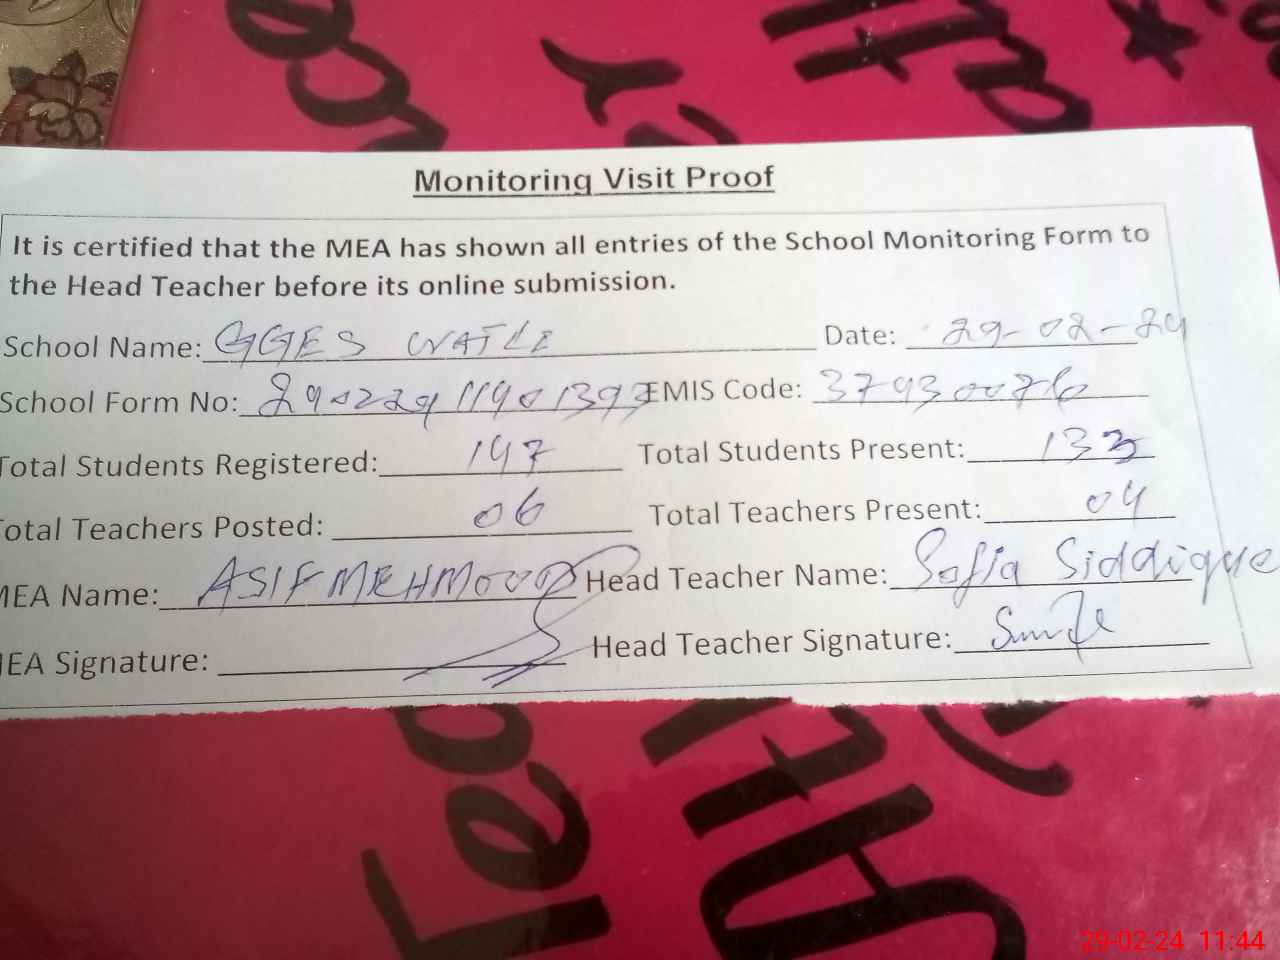 Monitoring Visit Proof
It is certified that the MEA has shown all entries of the School Monitoring Form to
the Head Teacher before its online submission.
School Name: GGES WATLE Date: 29-02-24
School Form No: EMIS Code: 37930076
Total Students Registered: 147 Total Students Present: 133
Total Teachers Posted: 06 Total Teachers Present: 04
MEA Name: ASIF MEHMOOD Head Teacher Name: Sofia Siddique
MEA Signature: Head Teacher Signature:
29-02-24 11:44